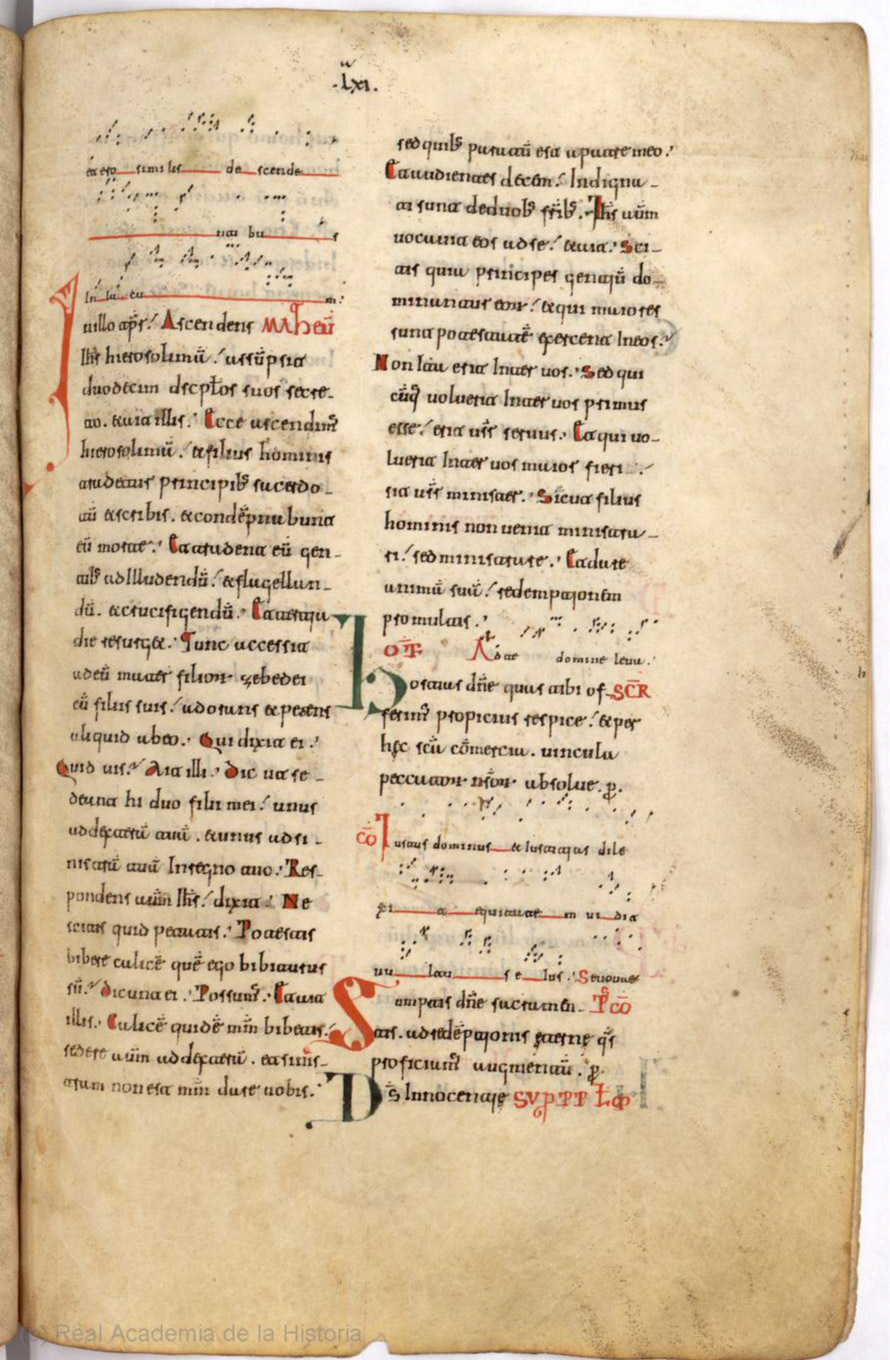 .lxi.
et ero similis descende
nti bus
In lacu m:
In illo tp̄r. Ascendens MATHEŪ
Ih̄s hierosolimā. assūpsit
duodecim discipl̄os suos secre-
to. et ait illis. Ecce ascendim᷒
hierosolimā. et filius hominis
tradetur principib; sacerdo-
tū et scribis. et condēpnabunt
eū morte. Et tradent eū gen-
tib; ad Illudendū. et flagellan-
dū. et crucifigendū. Et tertia
die resurget. Tunc accessit
ad eū mater filior zebedei
cū filiis suis. adorans et petens
aliquid ab eo. Qui dixit ei.
Quid uis. Ait illi. Dic ut se-
deant hi duo filii mei. unus
ad dexterā tuā. et unus ad si-
nistrā tuā In regno tuo. Res-
pondens autm̄ Ih̄s. dixit. Ne
scitis quid petatis. Potestis
bibere calicē quē ego bibiturus
sū. Dicunt ei. Possum᷒. Et ait
illis. Calicē quidē mm̄ bibetis.
sedere autm̄ ad dexterā. et sinis-
tram non est mm̄ dare uobis.
sed quib; paratū est a patre meo.
Et audientes decem. Indigna-
ti sunt de duob; frīb;. Ih̄s autm̄
uocauit eos ad se. et ait. Sci-
tis quia principes gentiū do-
minantur eor. et qui maiores
sunt potestatē exercent In eos.
Non Ita erit Inter uos. Sed qui
cūq; uoluerit Inter uos primus
esse. erit ur̄ seruus. Et qui uo-
luerit Inter uos maior fieri.
sit ur̄ minister. Sicut filius
hominis non uenit ministra-
ri. sed ministrare. Et dare
animā suā. redemptionem
pro multis.
OF̄ Ad te domine leuaui.
Hostias dn̄e quas tibi of- SCR
ferim᷒ propicius respice. et per
hec sc̄a cōmercia. uincula
peccator nr̄or absolue. p.
CŌ Iustus dominus et iusticias dile
xi t equitate m ui dit
uu ltu s e ius. Ser oue
Sumptis dn̄e sacramen- Pcō
tis. ad redēptionis eterne qs̄
proficiam᷒ augmentū. p.
Ds̄ Innocentie SVP PP L̄O